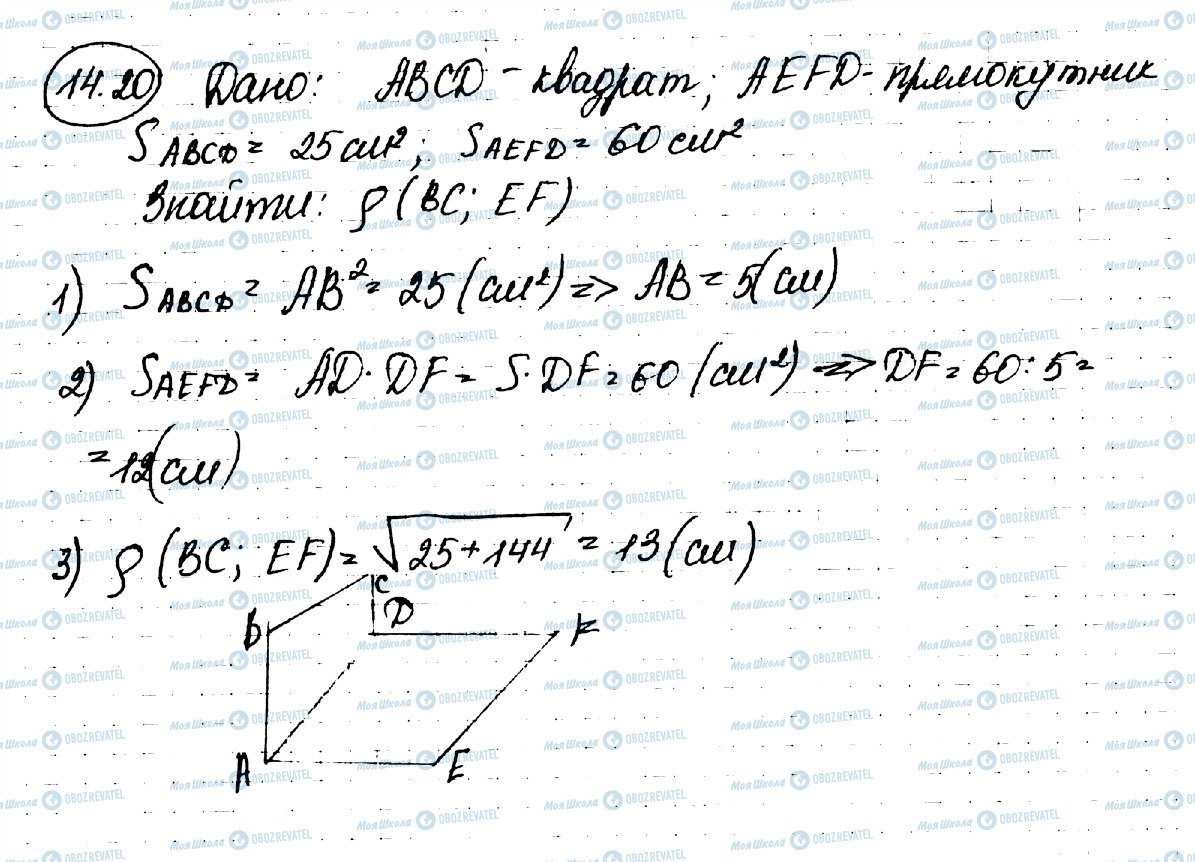 14.20 Дано: ABCD - квадрат; AEFD - прямокутник
S ABCD = 25 см²; S AEFD = 60 см²
Знайти: ρ (BC; EF)
1) S ABCD = AB² = 25 (см²) => AB = 5 (см)
2) S AEFD = AD · DF = 5 · DF = 60 (см²) => DF = 60 : 5 =
= 12 (см)
3) ρ (BC; EF) = √25 + 144 = 13 (см)
C
B D F
A E
Моя Школа OBOZREVATEL